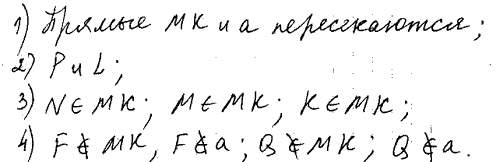 1) Прямые MK и a пересекаются;
2) P и L;
3) N ∈ MK; M ∈ MK; K ∈ MK;
4) F ∉ MK, F ∉ a; Q ∉ MK; Q ∉ a.